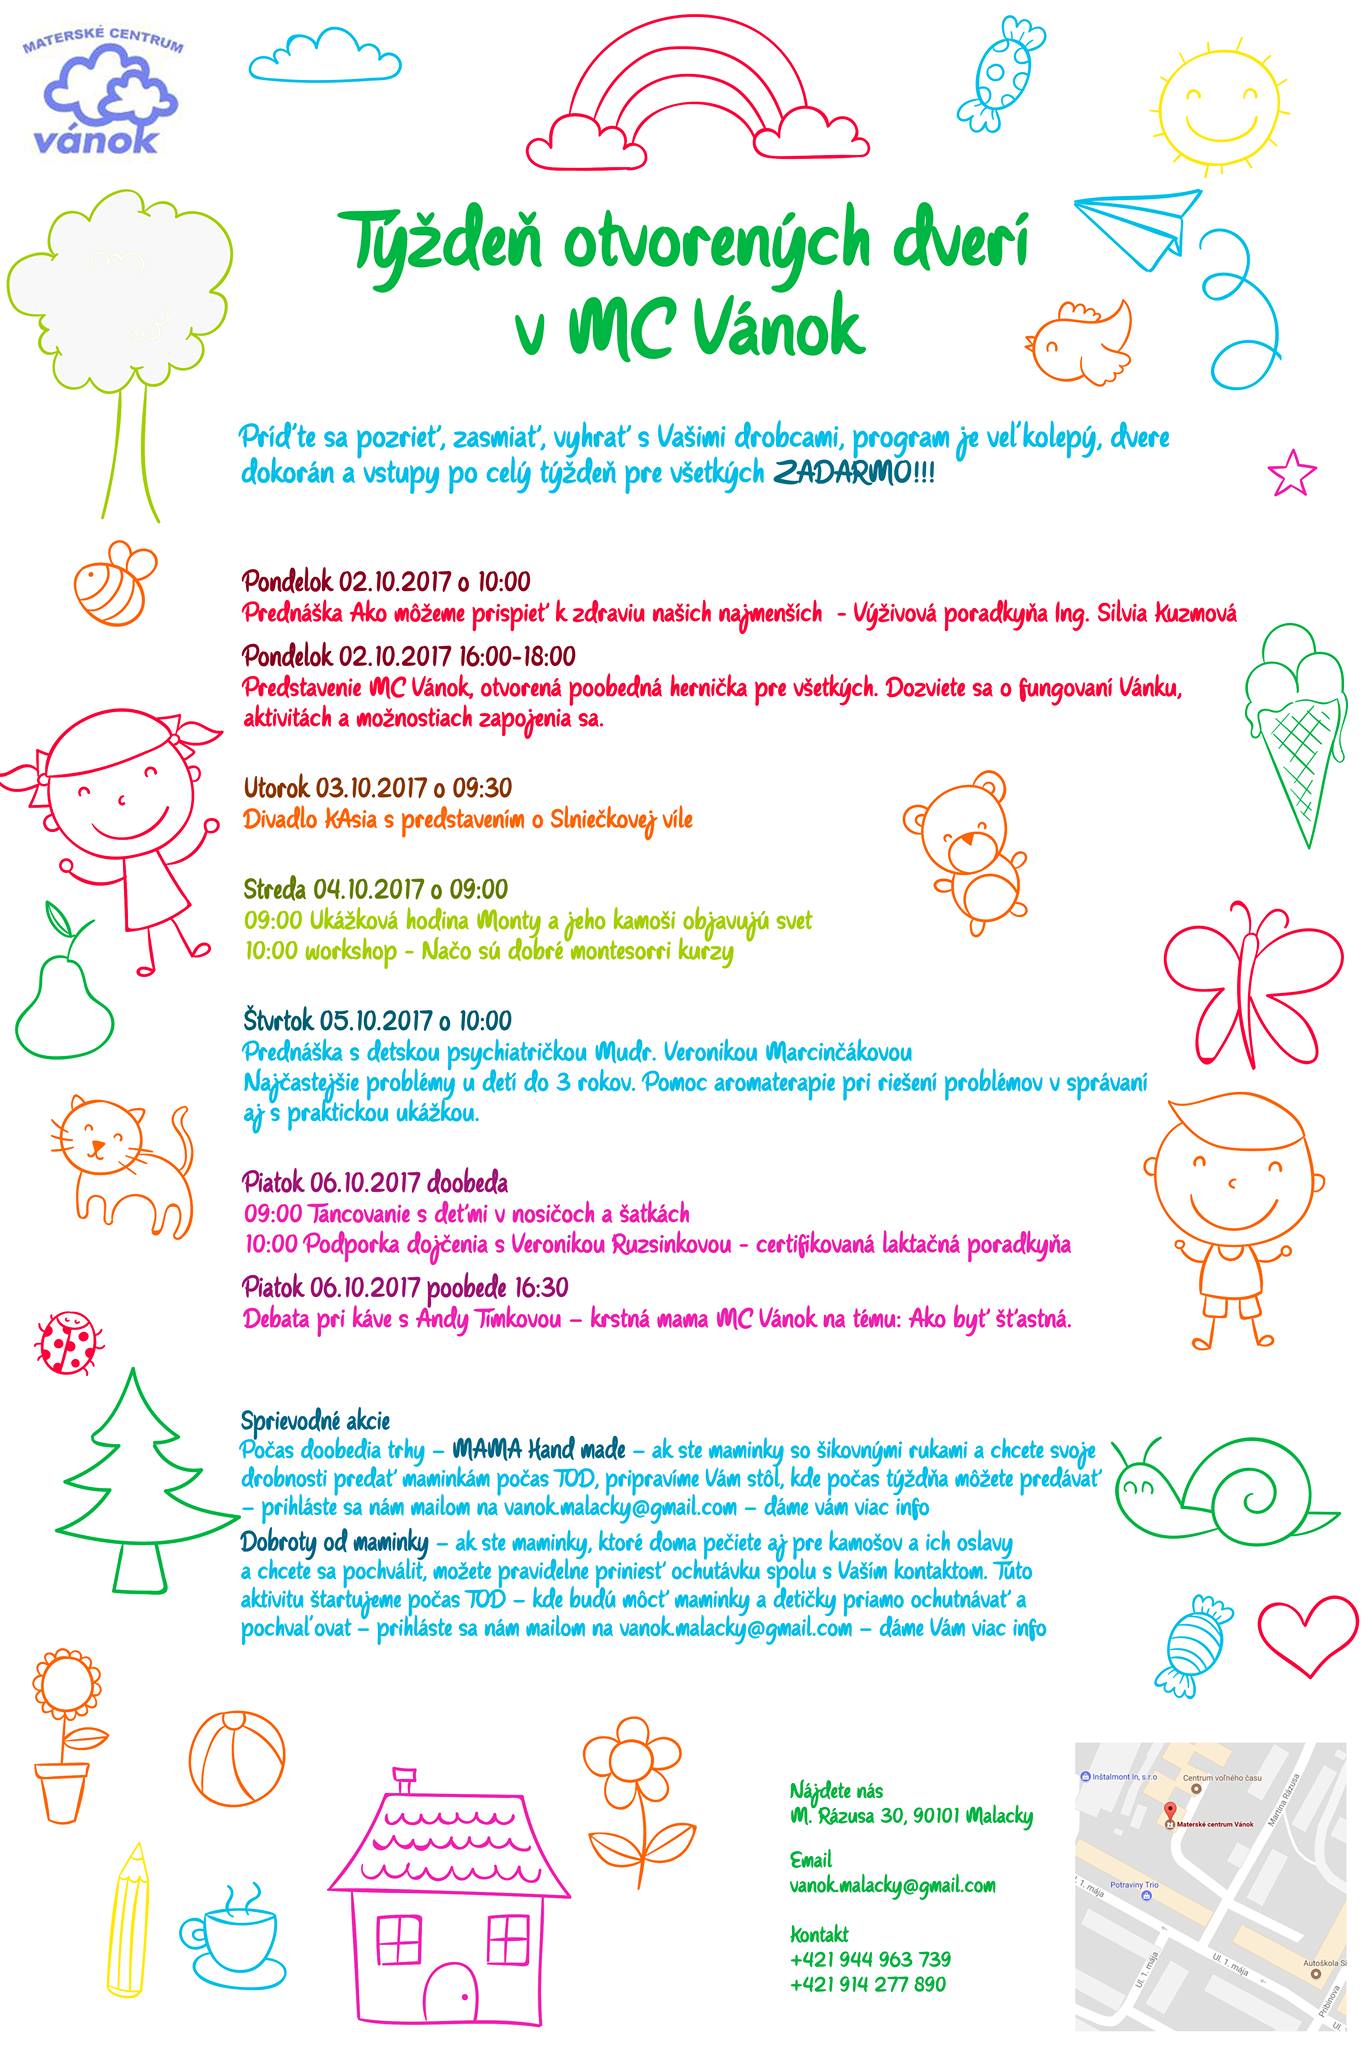 MATERSKÉ CENTRUM
vánok
Týždeň otvorených dverí
v MC Vánok
Príďte sa pozrieť, zasmiať, vyhrať s Vašimi drobcami, program je veľkolepý, dvere
dokorán a vstupy po celý týždeň pre všetkých ZADARMO!!!
Pondelok 02.10.2017 o 10:00
Prednáška Ako môžeme prispieť k zdraviu našich najmenších - Výživová poradkyňa Ing. Silvia Kuzmová
Pondelok 02.10.2017 16:00-18:00
Predstavenie MC Vánok, otvorená poobedná hernička pre všetkých. Dozviete sa o fungovaní Vánku,
aktivitách a možnostiach zapojenia sa.
Utorok 03.10.2017 o 09:30
Divadlo KAsia s predstavením o Slniečkovej víle
Streda 04.10.2017 o 09:00
09:00 Ukážková hodina Monty a jeho kamoši objavujú svet
10:00 workshop - Načo sú dobré montesorri kurzy
Štvrtok 05.10.2017 o 10:00
Prednáška s detskou psychiatričkou Mudr. Veronikou Marcinčákovou
Najčastejšie problémy u detí do 3 rokov. Pomoc aromaterapie pri riešení problémov v správaní
aj s praktickou ukážkou.
Piatok 06.10.2017 doobeda
09:00 Tancovanie s deťmi v nosičoch a šatkách
10:00 Podporka dojčenia s Veronikou Ruzsinkovou - certifikovaná laktačná poradkyňa
Piatok 06.10.2017 poobede 16:30
Debata pri káve s Andy Timkovou – krstná mama MC Vánok na tému: Ako byť šťastná.
Sprievodné akcie
Počas doobedia trhy – MAMA Hand made – ak ste maminky so šikovnými rukami a chcete svoje
drobnosti predať maminkám počas TOD, pripravíme Vám stôl, kde počas týždňa môžete predávať
– prihláste sa nám mailom na vanok.malacky@gmail.com – dáme vám viac info
Dobroty od maminky – ak ste maminky, ktoré doma pečiete aj pre kamošov a ich oslavy
a chcete sa pochváliť, možete pravidelne priniesť ochutávku spolu s Vaším kontaktom. Túto
aktivitu štartujeme počas TOD – kde budú môcť maminky a detičky priamo ochutnávať a
pochvaľovat – prihláste sa nám mailom na vanok.malacky@gmail.com – dáme Vám viac info
Nájdete nás
M. Rázusa 30, 90101 Malacky
Email
vanok.malacky@gmail.com
Kontakt
+421 944 963 739
+421 914 277 890
Inštalmont In, s.r.o
Centrum voľného času
Martina Rázusa
Materské centrum Vánok
Potraviny Trio
Ul. 1. mája
Ul. 1. mája
Ul. 1. mája
Autoškola Si
Pribinova
Ul.